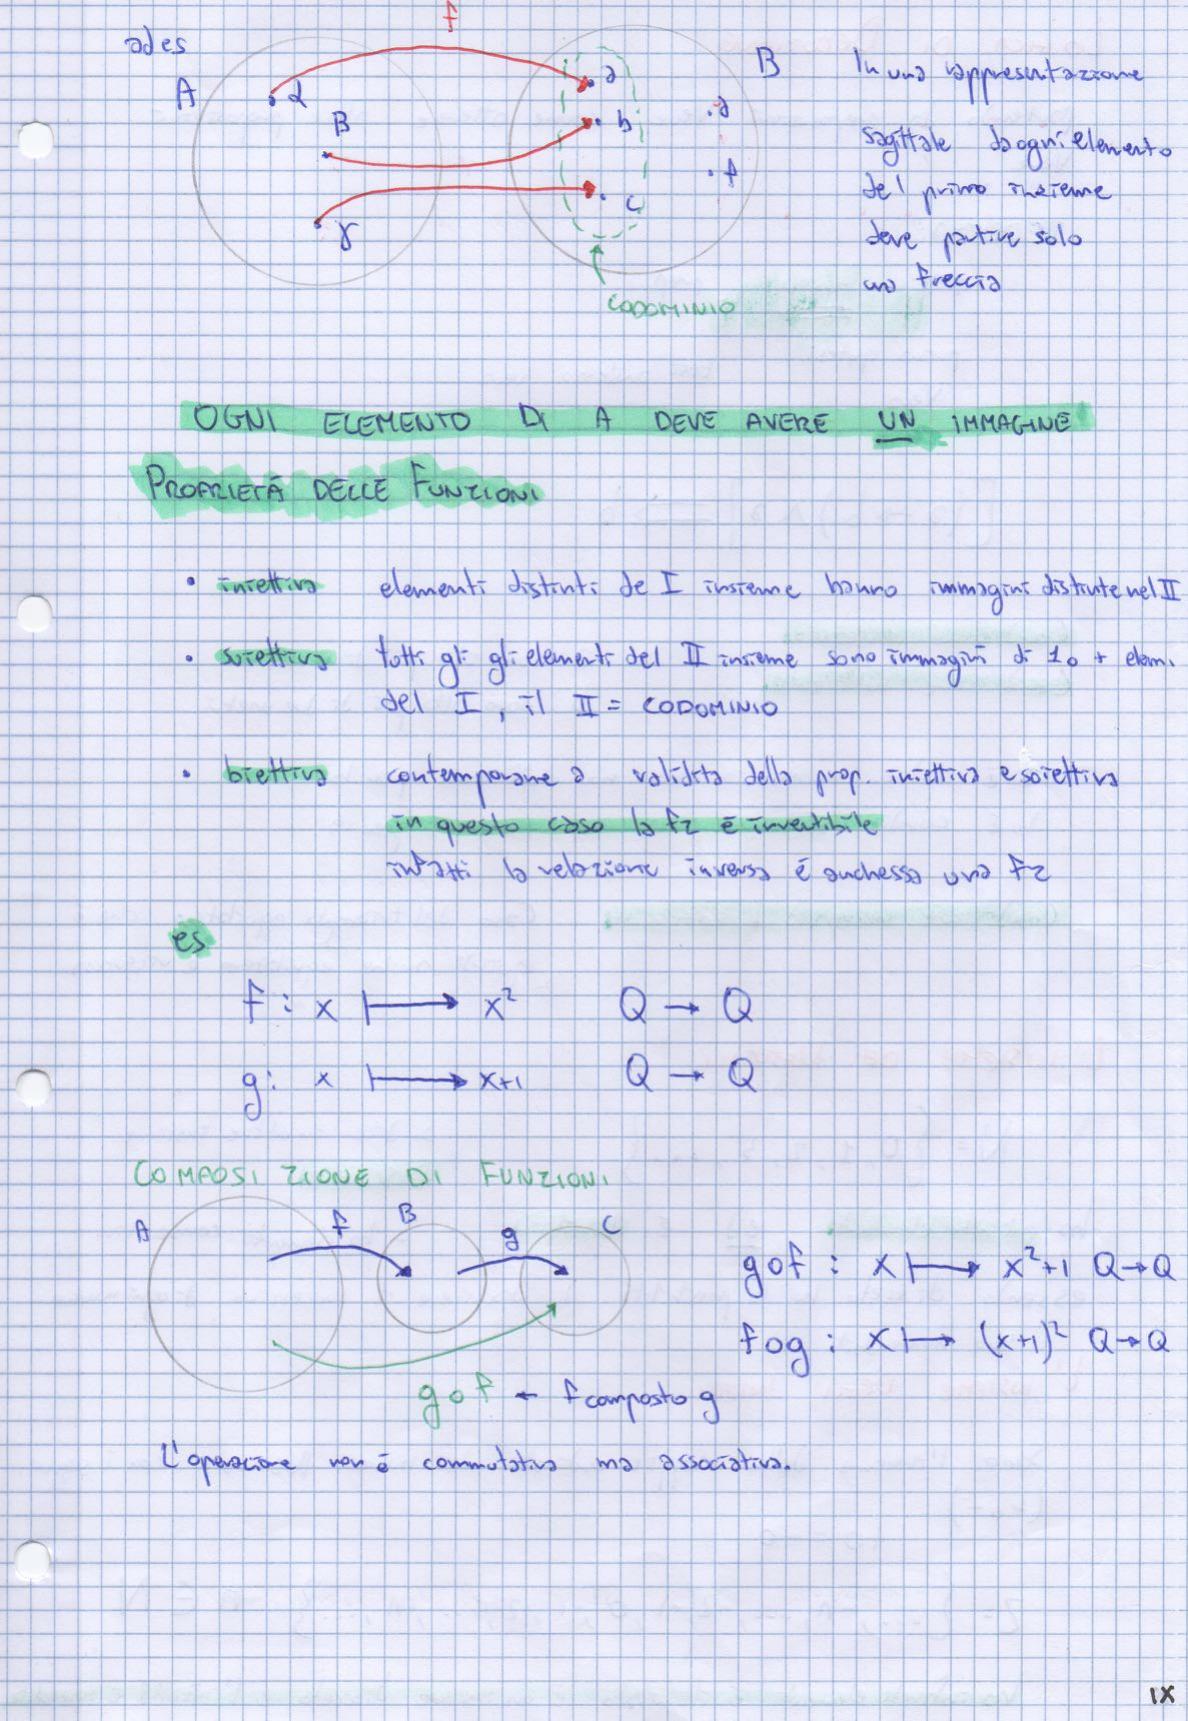 f
ad es
A
α
B
γ
a
b
c
d
f
B
CODOMINIO
In una rappresentazione
sagittale da ogni elemento
del primo insieme
deve partire solo
una freccia
OGNI ELEMENTO DI A DEVE AVERE UN IMMAGINE
PROPRIETÀ DELLE FUNZIONI
• iniettiva elementi distinti de I insieme hanno immagini distinte nel II
• suiettiva tutti gli gli elementi del II insieme sono immagini di 1 o + elem.
del I, il II = CODOMINIO
• biettiva contemporanea validità della prop. iniettiva e suiettiva
in questo caso la fz è invertibile
infatti la relazione inversa é anchessa una fz
es
f: x ↦ x² Q → Q
g: x ↦ x+1 Q → Q
COMPOSIZIONE DI FUNZIONI
A f B g C
gof : x ↦ x²+1 Q→Q
fog : x ↦ (x+1)² Q→Q
gof ← f composto g
L'operazione non è commutativa ma associativa.
IX